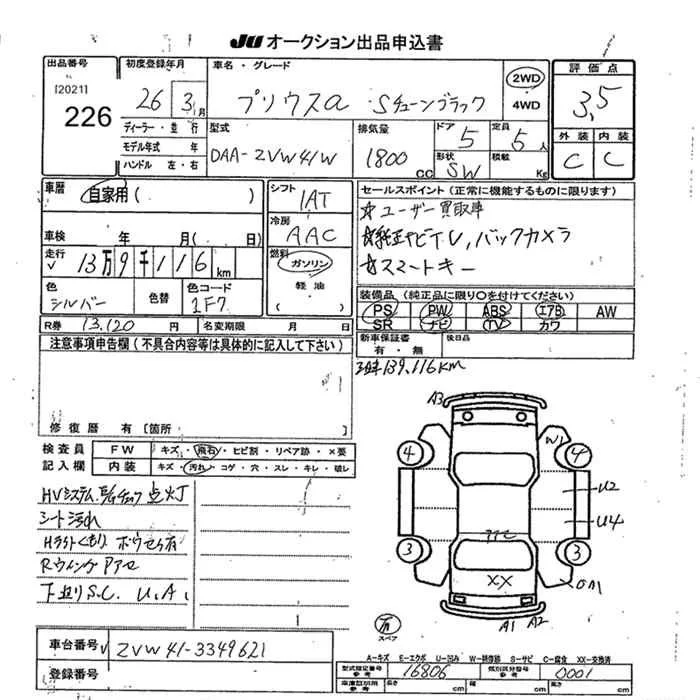 JU オークション出品申込書
出品番号 [2021] 226
初度登録年月 26年 3月
車名・グレード プリウスα Sチューンブラック
2WD
4WD
評価点 3.5
外装 内装
C C
ディーラー・並行
モデル年式 年
ハンドル 左・右
型式 DAA-ZVW41W
排気量 1800 CC
ドア 5
形状 SW
定員 5人
積載 Kg
車歴 自家用 ( )
シフト 1AT
セールスポイント (正常に機能するものに限ります)
☆ユーザー買取車
☆純正ナビTV,バックカメラ
☆スマートキー
車検 年 月 ( 日)
冷房 AAC
走行 13万9千116 km
燃料 ガソリン
軽油
( )
色 シルバー
色替
色コード 1F7
装備品 (純正品に限り○を付けてください)
PS PW ABS エアB AW
SR ナビ TV カワ
R券 13,120 円
名変期限 月 日
新車保証書 有・無
後日品
注意事項申告欄 (不具合内容等は具体的に記入して下さい)
139,116KM
修復歴 有 [箇所
検査員記入欄
FW キズ・飛石・ヒビ割・リペア跡・×要
内装 キズ・汚れ・コゲ・穴・スレ・キレ・破レ
HVシステム 点灯
シート汚れ
Hライトくもり
下廻りS.C. U,A,
A3
4
4
W1
U2
U4
3
3
XX
A1 A2
スペア
車台番号 ZVW41-3349621
登録番号
A-キズ E-エクボ U-凹み W-補修跡 S-サビ C-腐食 XX-交換済
型式指定番号 16806
類別区分番号 0001
車庫証明用参考 長さ cm 幅 cm 高さ cm